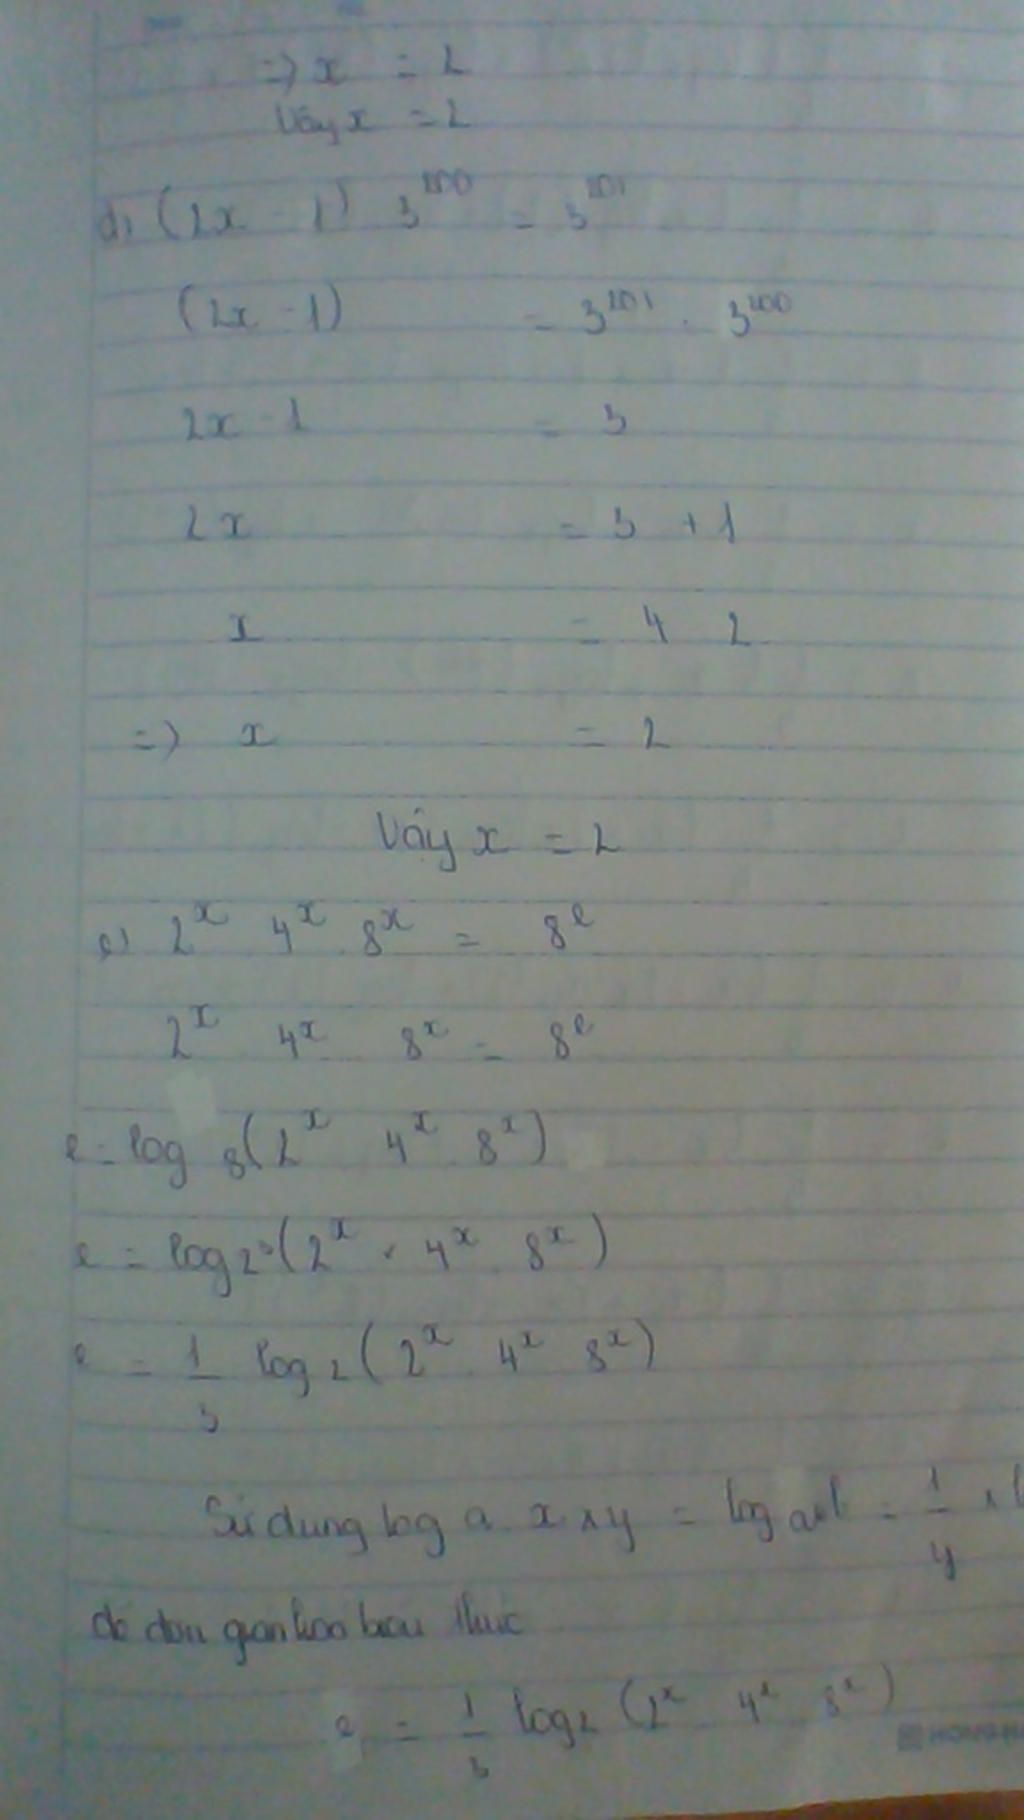 => x = 2
Vậy x = 2
d) (2x - 1) 3^100 = 3^101
(2x - 1) = 3^101 . 3^100
2x - 1 = 3
2x = 3 + 1
x = 4 2
=> x = 2
Vậy x = 2
e) 2^x 4^x 8^x = 8^e
2^x 4^x 8^x = 8^e
e = log 8(2^x 4^x 8^x)
e = log 2^3(2^x . 4^x 8^x)
e = 1/3 log 2(2^x 4^x 8^x)
Sử dụng log a x x y = log = 1/y x
để đơn giản hoá biểu thức
e = 1/3 log 2 (2^x 4^x 8^x)